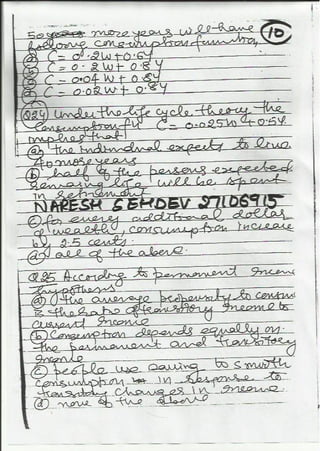 50 years more years will have
following consumption function
(10)
(a) C = 0.2W + 0.6Y
(b) C = 0.2W + 0.8Y
(c) C = 0.04W + 0.8Y
(d) C = 0.02W + 0.8Y
Q24 Under the life cycle theory the
consumption fn C = 0.025W + 0.5Y
implies that
(a) the individual expects to live
40 more years
(b) half of the persons expected
remaining life will be spent
in retirement
NARESH SEHDEV 27106915
(c) for every additional dollar
of wealth, consumption increase
by 2.5 cents.
(d) all of the above.
Q25 According to permanent income
hypothesis
(a) the average propensity to consume
is the ratio of transitory income to
current income
(b) Consumption depends equally on
the permanent and transitory
income
(c) people use saving to smooth
consumption in response to
transitory changes in income
(d) none of the above